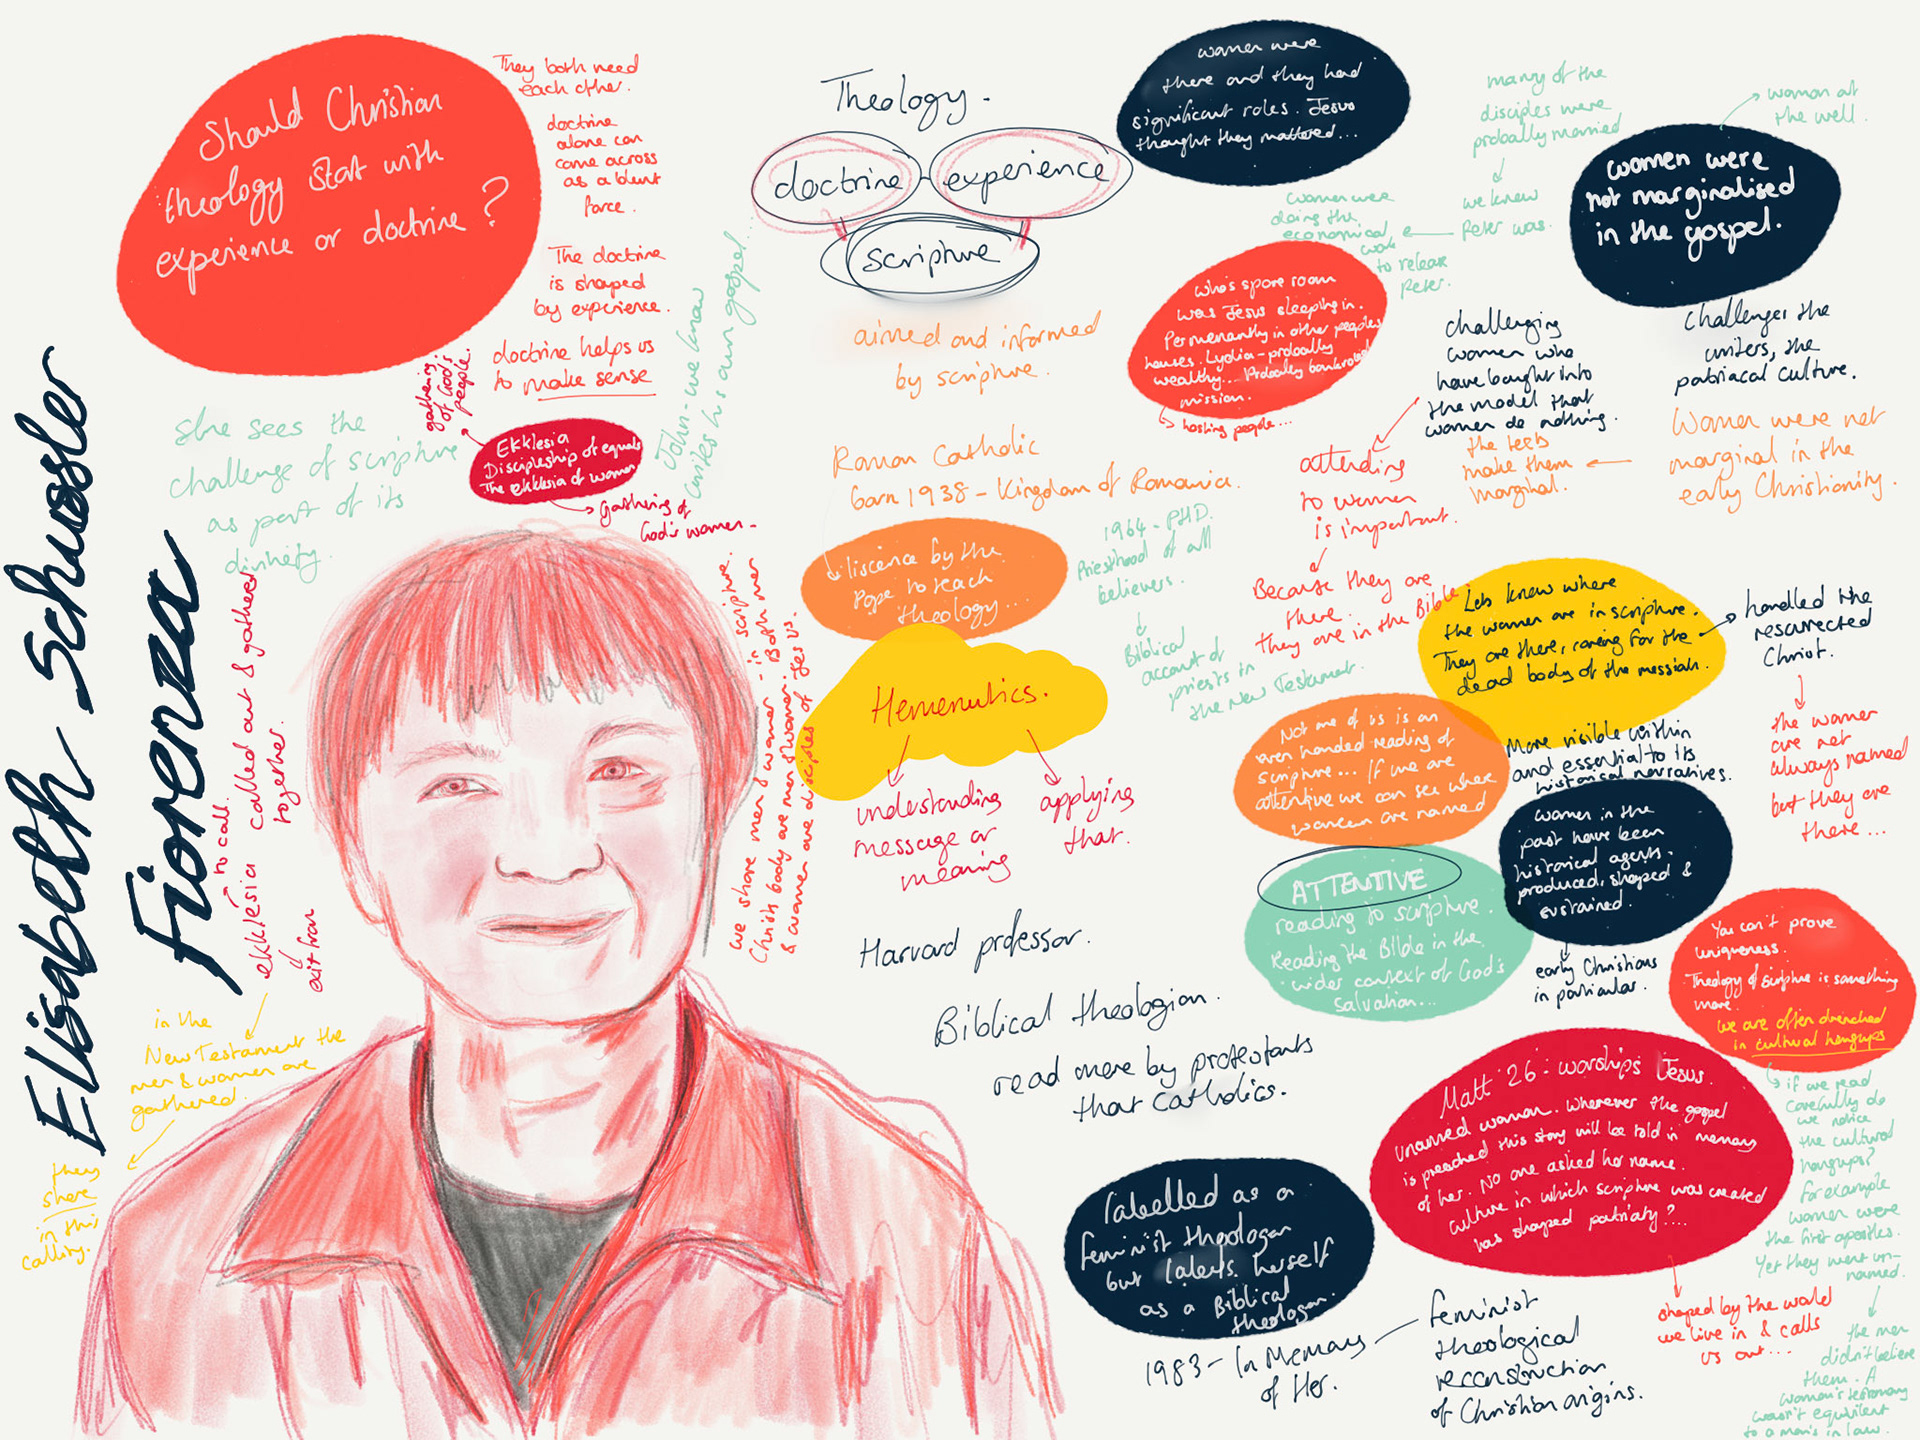 Elisabeth Schussler
Fiorenza
Should Christian
theology start with
experience or doctrine?
They both need
each other.
doctrine
alone can
come across
as a blunt
force.
The doctrine
is shaped
by experience.
doctrine helps us
to make sense
gathering
of God's
people.
Ekklesia
Discipleship of equals
The ekklesia of women
gathering of
God's women-
She sees the
challenge of scripture
as part of its
divinity.
John - we know
writes his own gospel...
ekklesia called out & gathered
together.
to call.
exit from
in the
New Testament the
men & women are
gathered.
they
share
in this
calling.
we share men & women - in scripture.
Christ's body are men & women. Both men
& women are disciples of Jesus.
Theology.
doctrine
experience
scripture
aimed and informed
by scripture.
Roman Catholic
born 1938 - Kingdom of Romania.
liscence by the
Pope to teach
theology....
1964 - PHD.
Priesthood of all
believers.
Biblical
account of
priests in
the New Testament.
Hemenutics.
understanding
message or
meaning
applying
that.
Harvard professor.
Biblical theologian.
read more by protestants
that Catholics.
Labelled as a
feminist theologan
but labels herself
as a Biblical
theologan.
1983 - In Memory
of Her.
feminist
theological
reconstruction
of Christian origins.
women were
there and they had
significant roles. Jesus
thought they mattered...
many of the
disciples were
probally married
we know
Peter was.
women were
doing the
economical
work
to release
Peter.
women at
the well.
women were
not marginalised
in the gospel.
who's spare room
was Jesus sleeping in.
Permenantly in other peoples
houses. Lydia - probally
wealthy... Probally bankrolled
mission.
hosting people...
challenging
women who
have bought into
the model that
women do nothing.
challenges the
writers, the
patriacal culture.
Women were not
marginal in the
early Christianity.
the texts
make them
marginal.
attending
to women
is important.
Because they are
there.
They are in the Bible
Lets know where
the women are in scripture.
They are there, caring for the
dead body of the messiah.
handled the
resurrected
Christ.
the women
are not
always named
but they are
there...
More visible within
and essential to its
historical narratives.
Not one of us is an
even handed reading of
scripture... If we are
attentive we can see where
women are named
ATTENTIVE
reading to scripture.
Reading the Bible in the
wider context of God's
salvation...
women in the
past have been
historical agents.
produced, shaped &
sustained.
early Christians
in particular.
You can't prove
uniqueness.
Theology of scripture is something
more.
we are often drenched
in cultural hangups
if we read
carefully do
we notice
the cultural
hangups?
for example
women were
the first apostles.
Yet they went un-
named.
the men
didn't believe
them. A
woman's testimony
wasn't equivilent
to a man's in law.
Matt 26: worships Jesus.
unamed woman. Wherever the gospel
is preached this story will be told in memory
of her. No one asked her name.
Culture in which scripture was created
has shaped patriaty?...
shaped by the world
we live in & calls
us out...